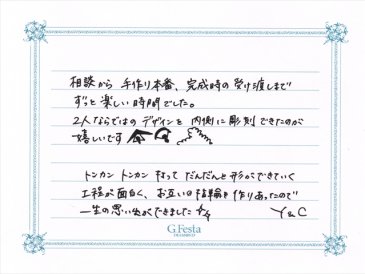 相談から 手作り本番、完成時の受け渡しまで
ずっと楽しい時間でした。
2人ならではのデザインを 内側に彫刻できたのが
嬉しいです
トンカン トンカン 打って だんだんと形ができていく
工程が面白く、お互いの指輪を作りあったので
一生の思い出ができました
Y&C
G.Festa